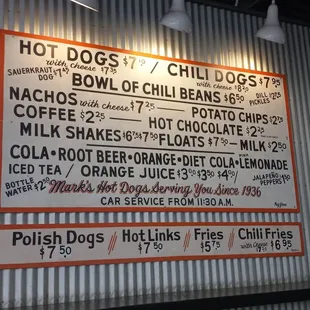 HOT DOGS $7 / CHILI DOGS $7.95
with cheese $7.75 with cheese $8
SAUERKRAUT DOG $7.45
BOWL OF CHILI BEANS $6.50
DILL PICKLES
NACHOS with cheese $7.25
POTATO CHIPS $2
COFFEE $2.25
HOT CHOCOLATE $2.25
MILK SHAKES $6.75 $7.50 FLOATS $7.50 MILK $2.50
COLA • ROOT BEER • ORANGE • DIET COLA • LEMONADE
ICED TEA / ORANGE JUICE $3.00 $3.50 $4.00
BOTTLE WATER $2
Mark's Hot Dogs Serving You Since 1936
JALAPEÑO PEPPERS
CAR SERVICE FROM 11:30 A.M.
Polish Dogs // Hot Links // Fries // Chili Fries
$7.50 $7.50 $5.75 with Cheese $6.95